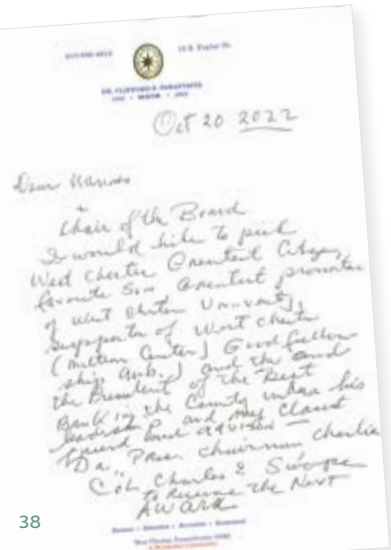 Oct 20 2022
Dear
+
Chair of the Board
I would like to pick
West Chester Greatest Citizen,
favorite Son Greatest promoter
of West Chester University,
Supporter of West Chester
(Melton Center) Good fellow
ship and the
the President of the Best
Bank in the County under his
leadership and my Closest
friend and advisor -
Chairman Charlie
Col. Charles E Swope
to Receive the Next
AWARD
West Chester, Pennsylvania
38